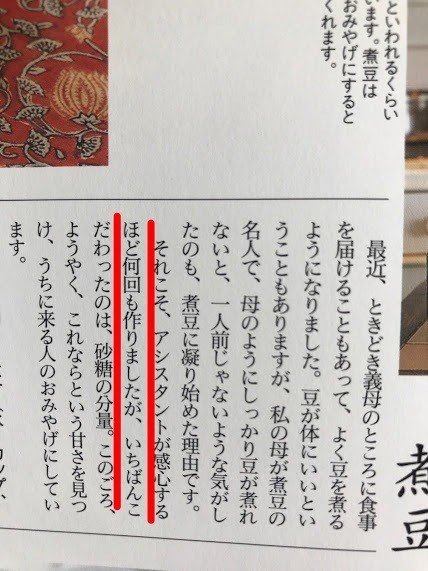 といわれるくらい
います。煮豆は
おみやげにすると
くれます。
煮豆
最近、ときどき義母のところに食事
を届けることもあって、よく豆を煮る
ようになりました。豆が体にいいとい
うこともありますが、私の母が煮豆の
名人で、母のようにしっかり豆が煮れ
ないと、一人前じゃないような気がし
たのも、煮豆に凝り始めた理由です。
それこそ、アシスタントが感心する
ほど何回も作りましたが、いちばんこ
だわったのは、砂糖の分量。このごろ、
ようやく、これならという甘さを見つ
け、うちに来る人のおみやげにしてい
ます。
カップ、